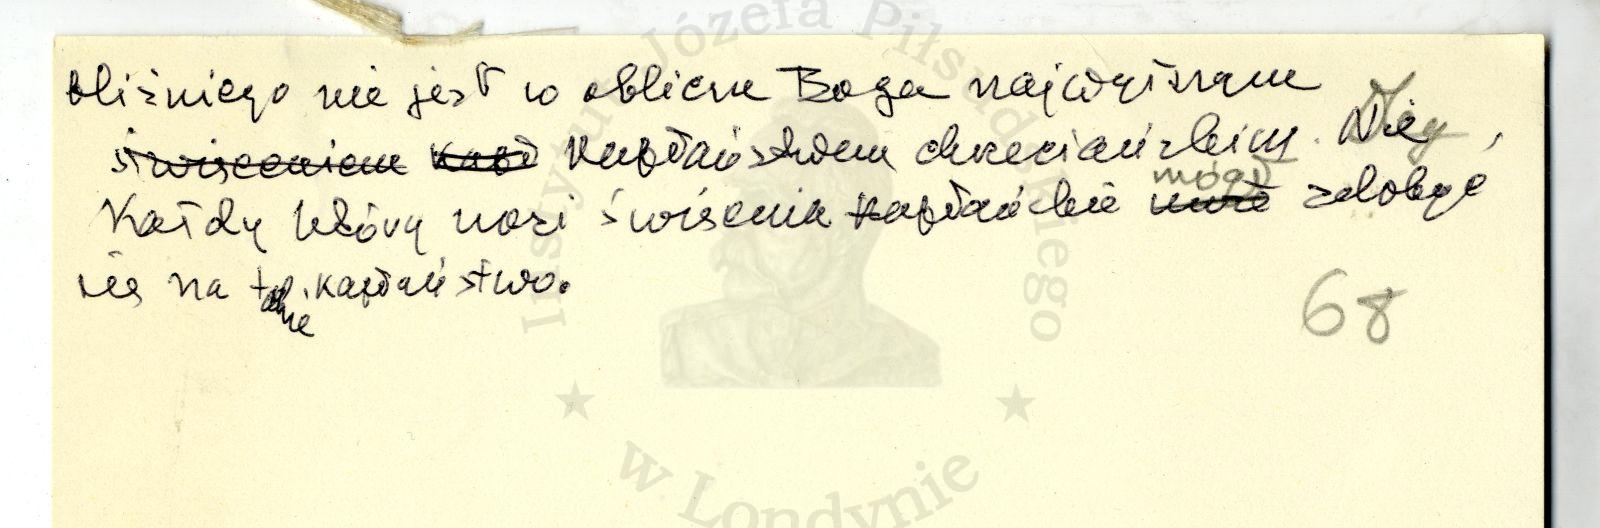 bliźniego nie jest w obliczu Boga najwyższym
święceniem Kapł Kapłaństwem chrześciańskim. Nie,
mógł
Każdy który nosi święcenia kapłańskie może zdobyć
się na takie kapłaństwo.
68
Instytut Józefa Piłsudskiego
w Londynie